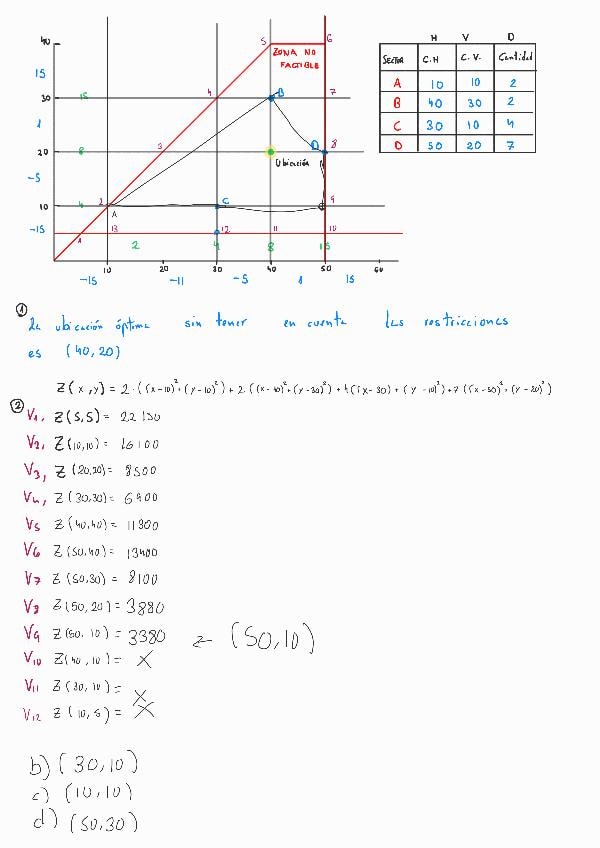 H V D
SECTOR C.H C.V. Cantidad
A 10 10 2
B 40 30 2
C 30 10 4
D 50 20 7
40 5 6
ZONA NO
FACTIBLE
15
30 15 4 B 7
1
20 8 3 D 8
Ubicación
-5
10 4 2 C 9
A
-15 1 13 12 11 10
2 4 8 15
10 20 30 40 50 60
-15 -11 -5 1 15
① La ubicación óptima sin tener en cuenta las restricciones
es (40,20)
Z(x,y) = 2·((x-10)²+(y-10)²)+2((x-40)²+(y-30)²)+4((x-30)+(y-10)²)+7((x-50)²+(y-20)²)
②
V1, Z(5,5) = 22150
V2, Z(10,10) = 16100
V3, Z(20,20) = 8500
V4, Z(30,30) = 6900
V5 Z(40,40) = 11300
V6 Z(50,40) = 13400
V7 Z(50,30) = 8100
V8 Z(50,20) = 3880
V9 Z(50,10) = 3380 (50,10)
V10 Z(40,10) = X
V11 Z(30,10) = X
V12 Z(10,5) = X
b) (30,10)
c) (10,10)
d) (50,30)